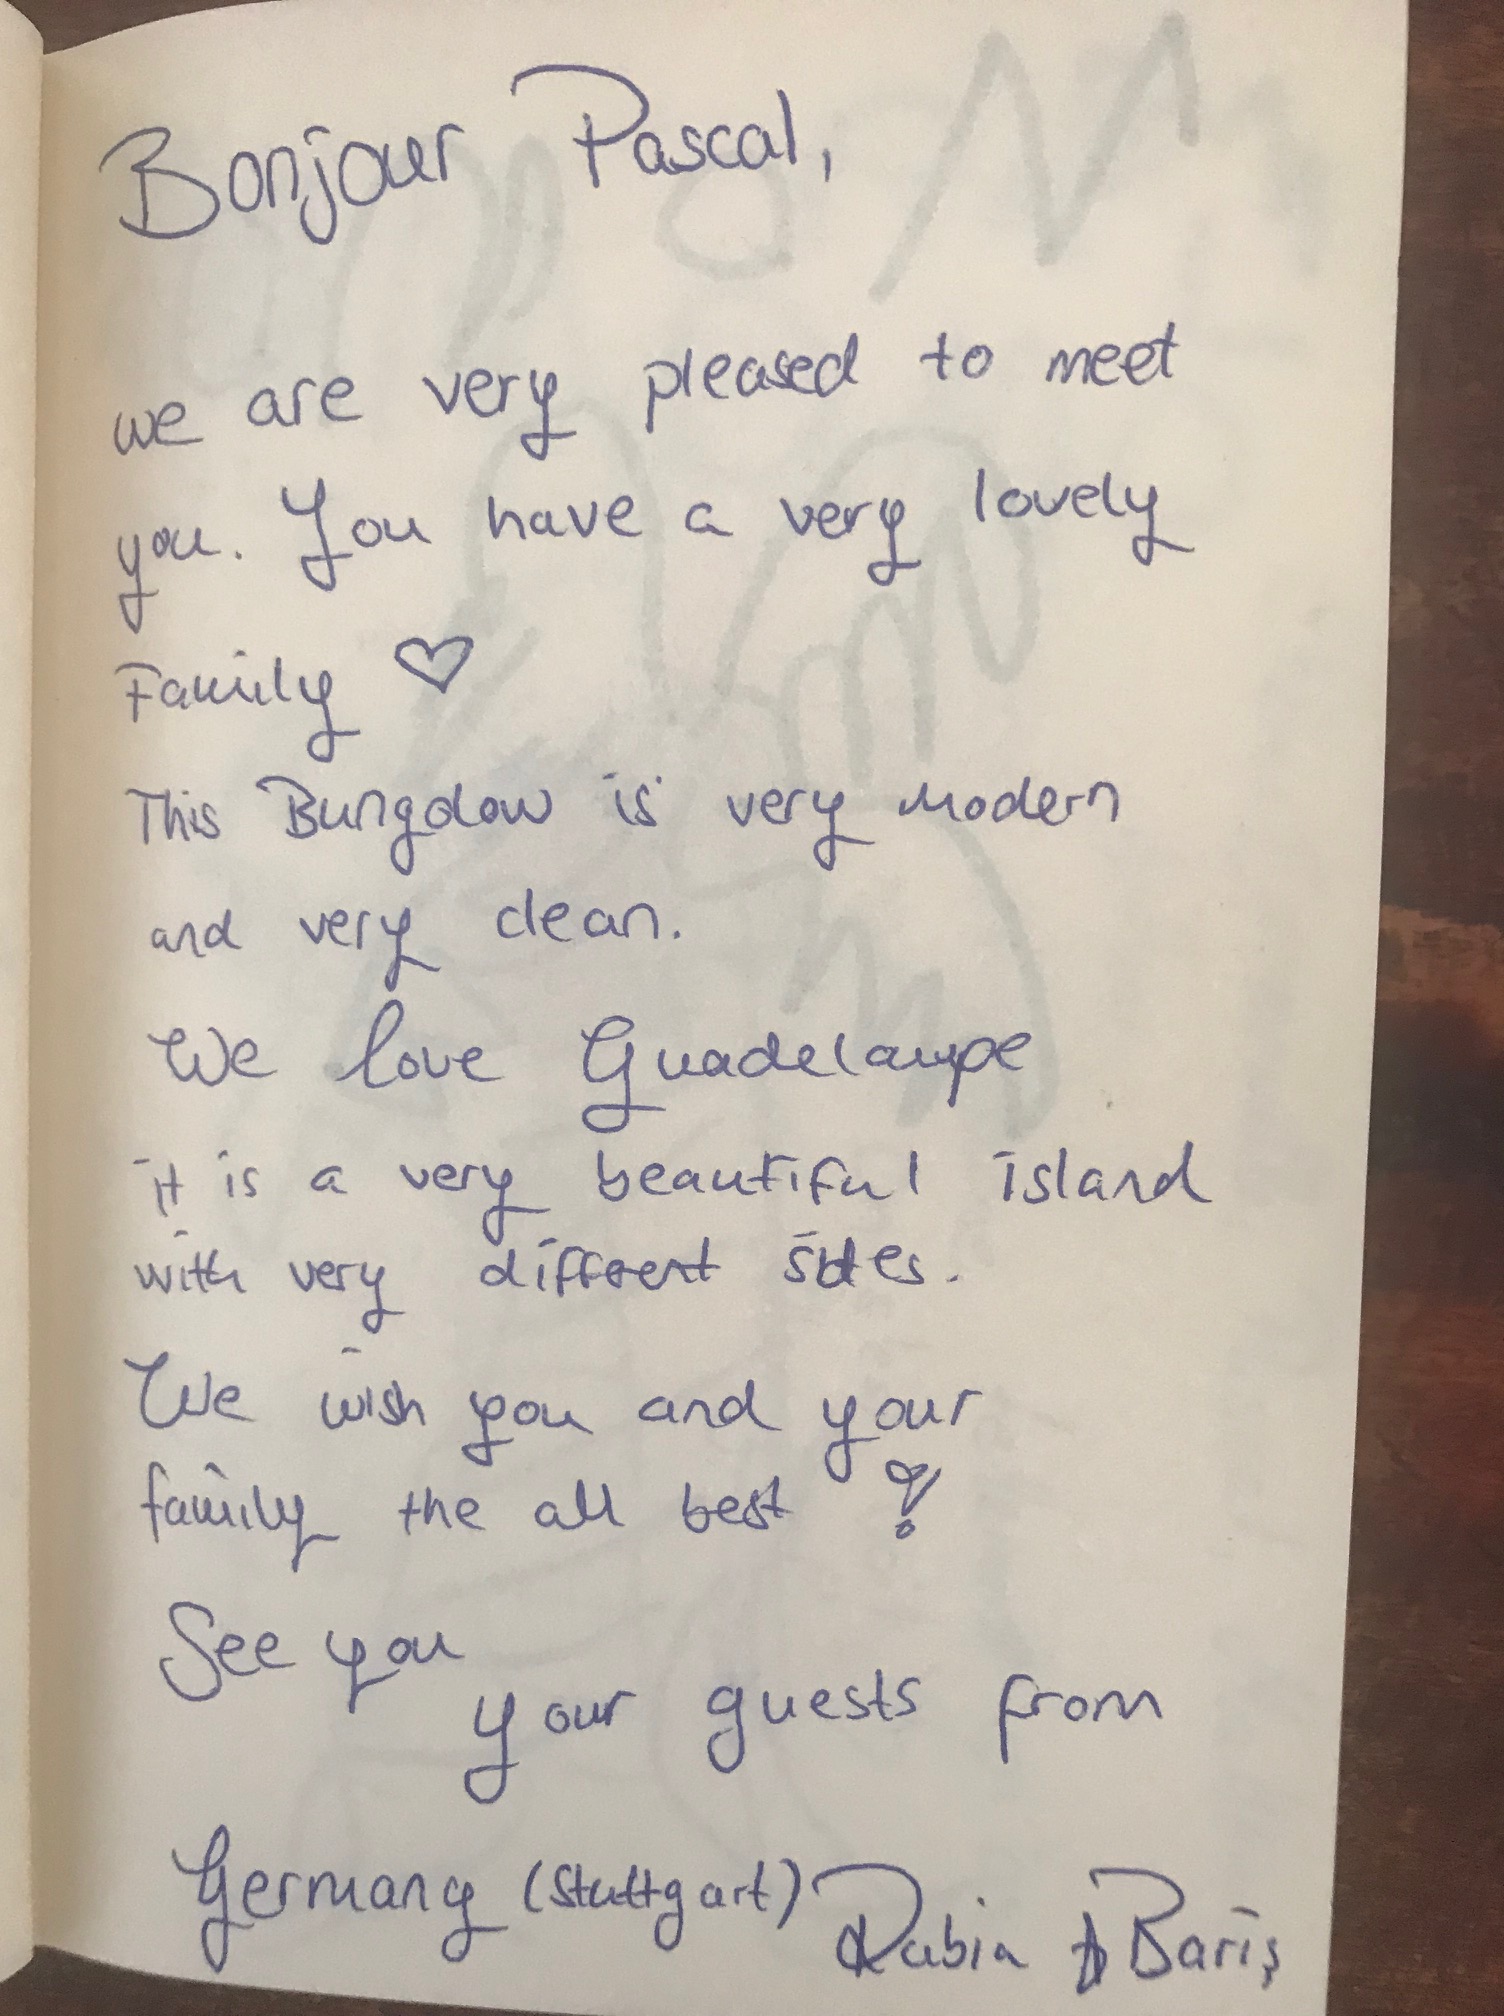 Bonjour Pascal,
we are very pleased to meet
you. You have a very lovely
Family ♡
This Bungalow is very modern
and very clean.
We love Guadelaupe
it is a very beautiful island
with very different sides.
We wish you and your
family the all best !
See you
your guests from
Germany (Stuttgart)
Rabia & Barış